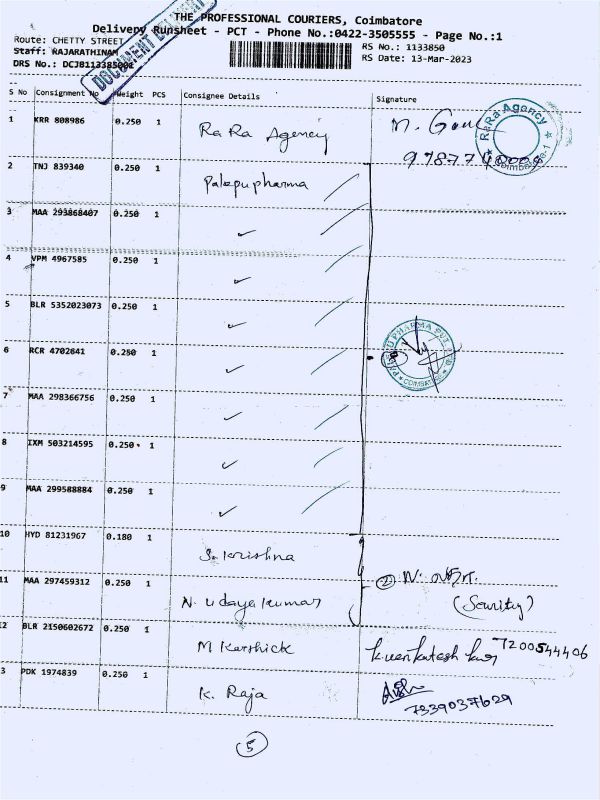 THE PROFESSIONAL COURIERS, Coimbatore
Delivery Runsheet - PCT - Phone No.:0422-3505555 - Page No.:1
Route: CHETTY STREET
Staff: RAJARATHINAM
DRS No.: DCJB11338500
RS No.: 1133850
RS Date: 13-Mar-2023
DOCUMENT DELIVERY
S No Consignment No Weight PCS Consignee Details Signature
1 KRR 808986 0.250 1 RaRa Agency M.
RaRa Agency ★ Coimbatore-1 ★
2 TNJ 839340 0.250 1 Palepu pharma
3 MAA 293868407 0.250 1 ✓
4 VPM 4967585 0.250 1 ✓
5 BLR 5352023073 0.250 1 ✓
6 RCR 4702641 0.250 1 ✓
PALEPU PHARMA PVT LTD ★ COIMBATORE ★
7 MAA 298366756 0.250 1 ✓
8 IXM 503214595 0.250 1 ✓
9 MAA 299588884 0.250 1 ✓
10 HYD 81231967 0.180 1 S. Krishna
11 MAA 297459312 0.250 1 N. Udayakumar
② N.
(Scurity)
12 BLR 2150602672 0.250 1 M Karthick k venkatesh 7200544406
13 PDK 1974839 0.250 1 K. Raja
7339037629
5